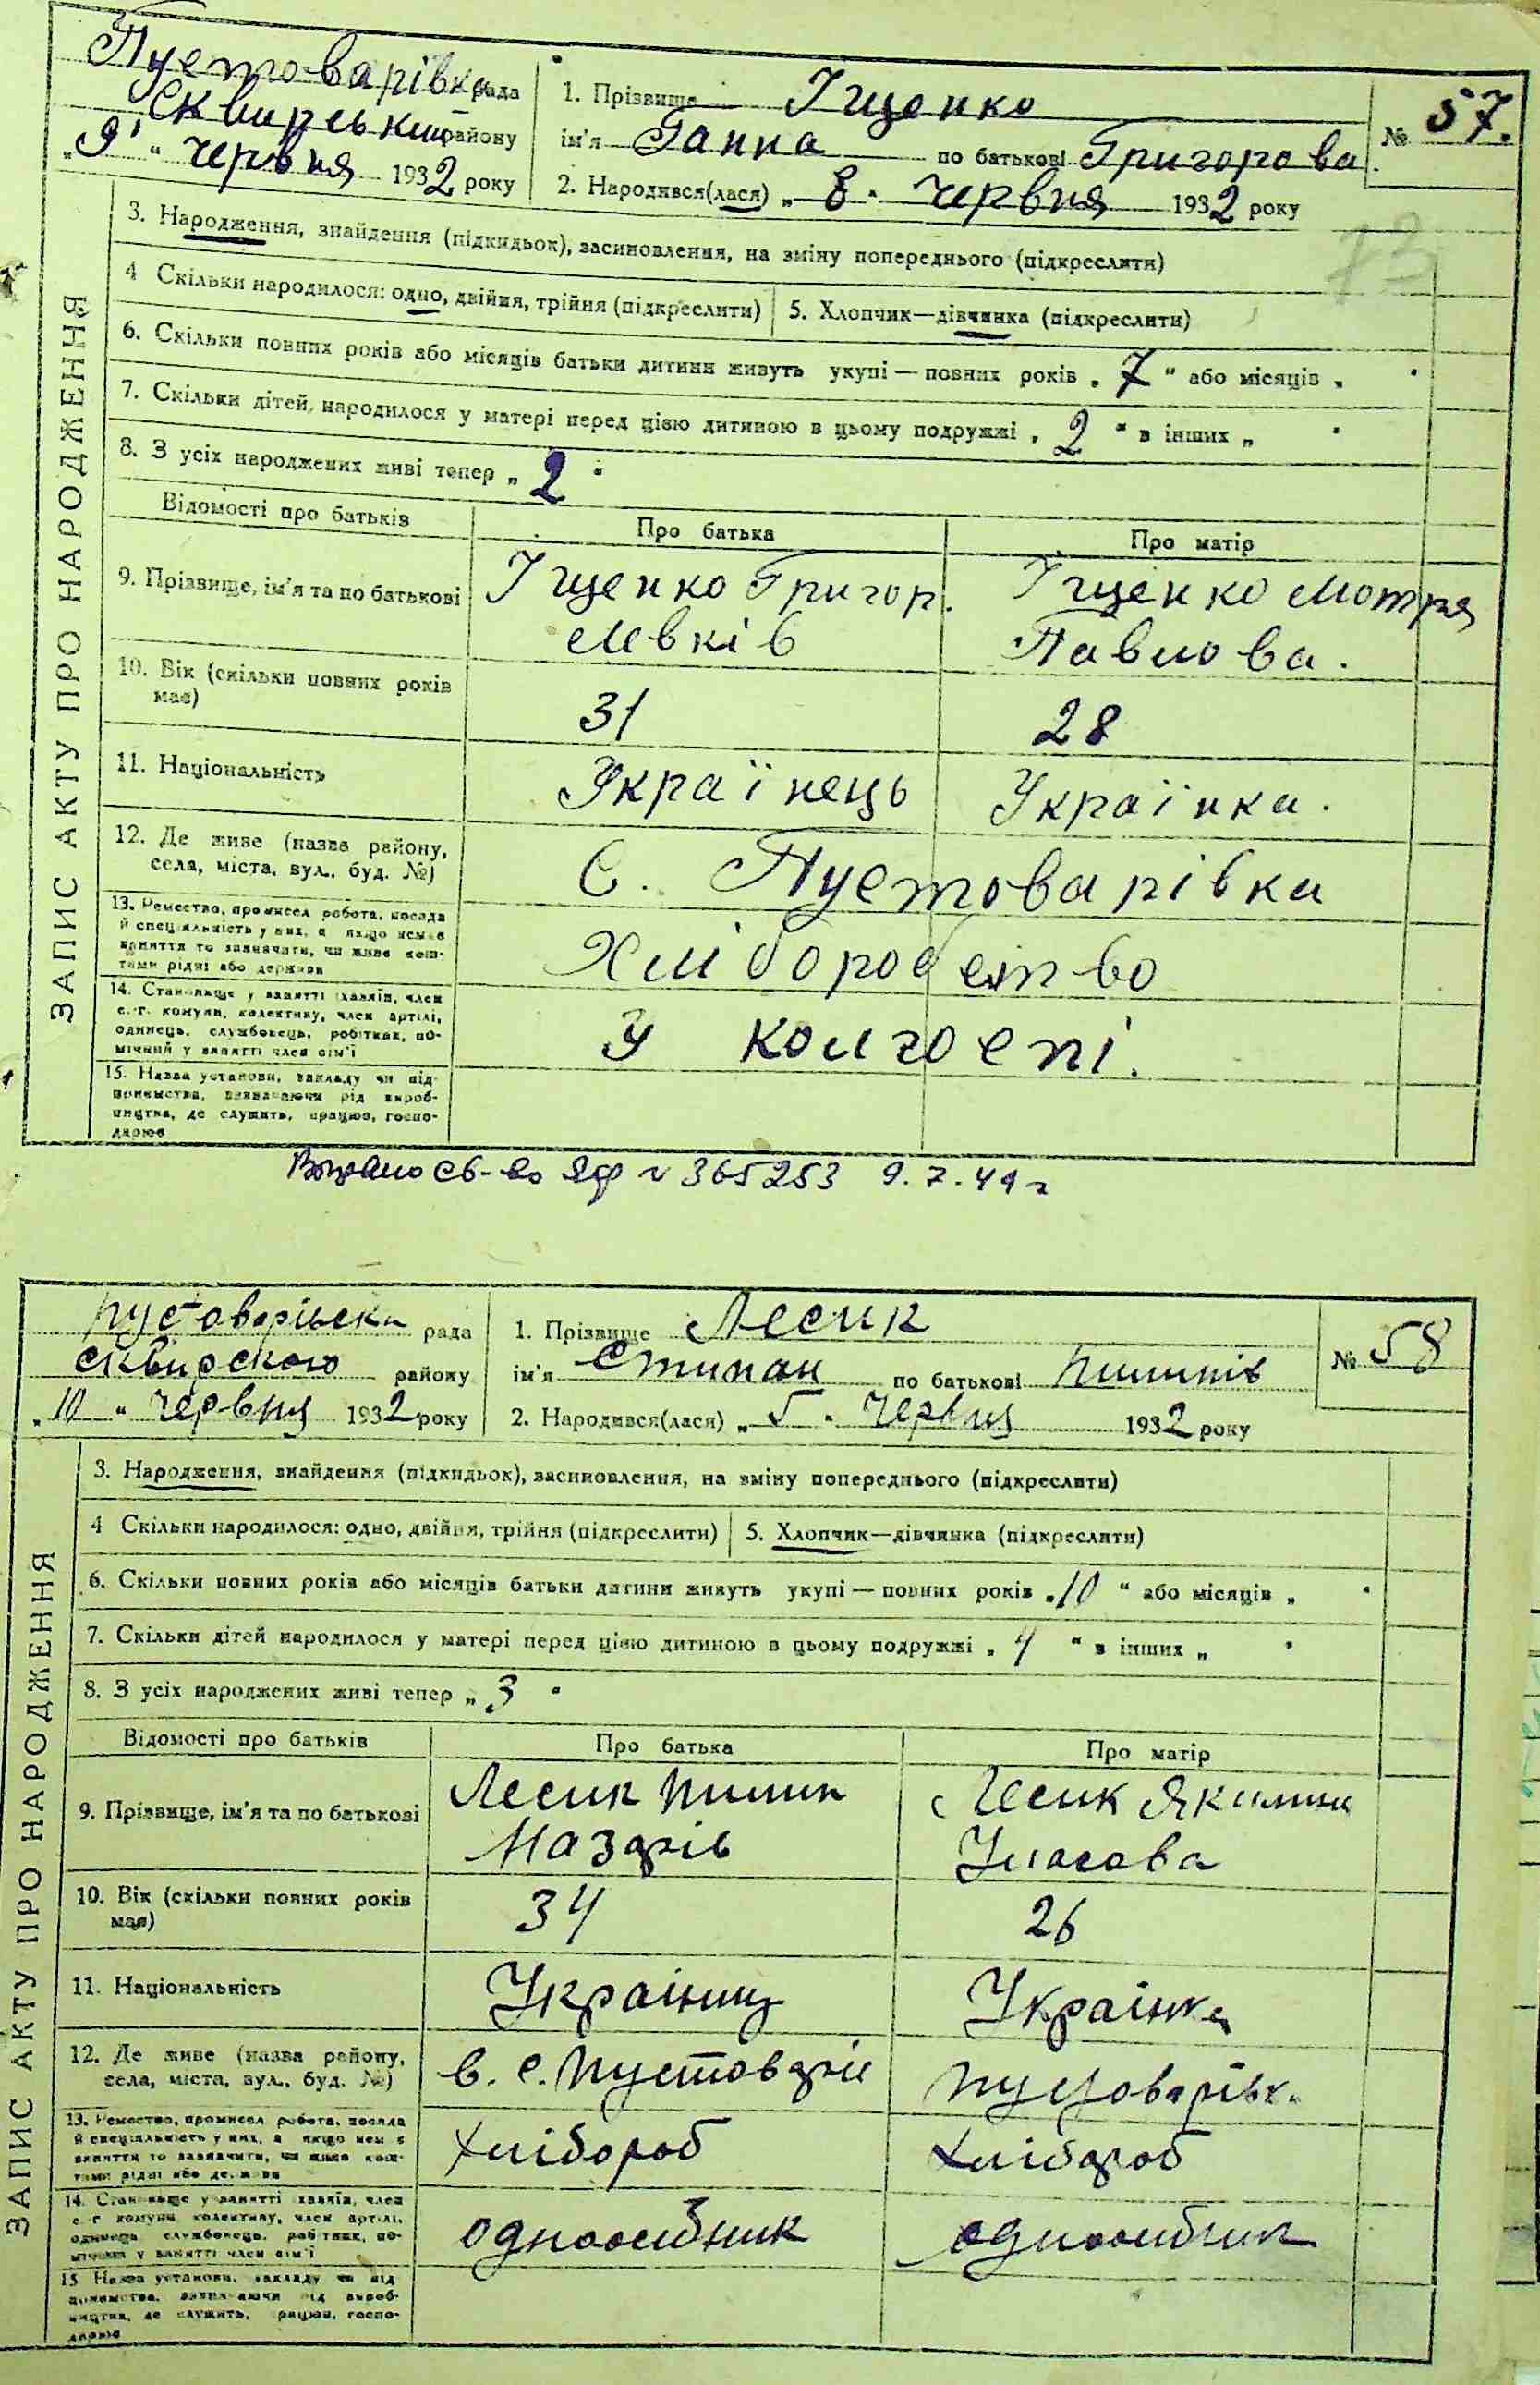 Пустоварівка рада
Сквирський району
„9" червня 1932 року
1. Прізвище Іщенко
ім'я Ганна по батькові Григорова
2. Народився(лася) „8" червня 1932 року
№ 57.
73
ЗАПИС АКТУ ПРО НАРОДЖЕННЯ
3. Народження, знайдення (підкидьок), засиновлення, на зміну попереднього (підкреслити)
4 Скільки народилося: одно, двійня, трійня (підкреслити) 5. Хлопчик—дівчинка (підкреслити)
6. Скільки повних років або місяців батьки дитини живуть укупі — повних років „7" або місяців „ "
7. Скільки дітей народилося у матері перед цією дитиною в цьому подружжі „2" в інших „ "
8. З усіх народжених живі тепер „2"
Відомості про батьків Про батька Про матір
9. Прізвище, ім'я та по батькові Іщенко Григор. Іщенко Мотря
Левків Павлова.
10. Вік (скільки повних років
має) 31 28
11. Національність Українець Українка.
12. Де живе (назва району,
села, міста, вул., буд. №) С. Пустоварівка
13. Ремество, промисел робота, посада
й спеціяльність у них, а якщо немає
заняття то зазначити, чи живе кош-
тами рідні або держави Хліборобство
14. Становище у занятті хазяїн, член
с.-г. комуни, колективу, член артілі,
одинець, службовець, робітник, по-
мічний у занятті член сім'ї У колгоспі.
15. Назва установи, закладу чи під-
приємства, зазначаючи рід вироб-
ництва, де служить, працює, госпо-
дарює
Видано св-во ЯФ № 365253 9.7.49 г
Пустоварівська рада
Сквирского району
„10" червня 1932 року
1. Прізвище Лесик
ім'я Степан по батькові Пилипів
2. Народився(лася) „5" червня 1932 року
№ 58
ЗАПИС АКТУ ПРО НАРОДЖЕННЯ
3. Народження, знайдення (підкидьок), засиновлення, на зміну попереднього (підкреслити)
4 Скільки народилося: одно, двійня, трійня (підкреслити) 5. Хлопчик—дівчинка (підкреслити)
6. Скільки повних років або місяців батьки дитини живуть укупі — повних років „10" або місяців „ "
7. Скільки дітей народилося у матері перед цією дитиною в цьому подружжі „4" в інших „ "
8. З усіх народжених живі тепер „3"
Відомості про батьків Про батька Про матір
9. Прізвище, ім'я та по батькові Лесик Пилип Лесик Якилина
Назарів Уласова
10. Вік (скільки повних років
має) 34 26
11. Національність Українец Українка
12. Де живе (назва району,
села, міста, вул., буд. №) в. с. Пустоварів Пустоварівк.
13. Ремество, промисел робота, посада
й спеціяльність у них, а якщо немає
заняття то зазначити, чи живе кош-
тами рідні або держави Хлібороб Хлібороб
14. Становище у занятті хазяїн, член
с.-г. комуни колективу, член артілі,
одинець службовець, робітник, по-
мічний у занятті член сім'ї одноосібник одноосібник
15 Назва установи, закладу чи під-
приємства, зазначаючи рід вироб-
ництва, де служить, працює, госпо-
дарює